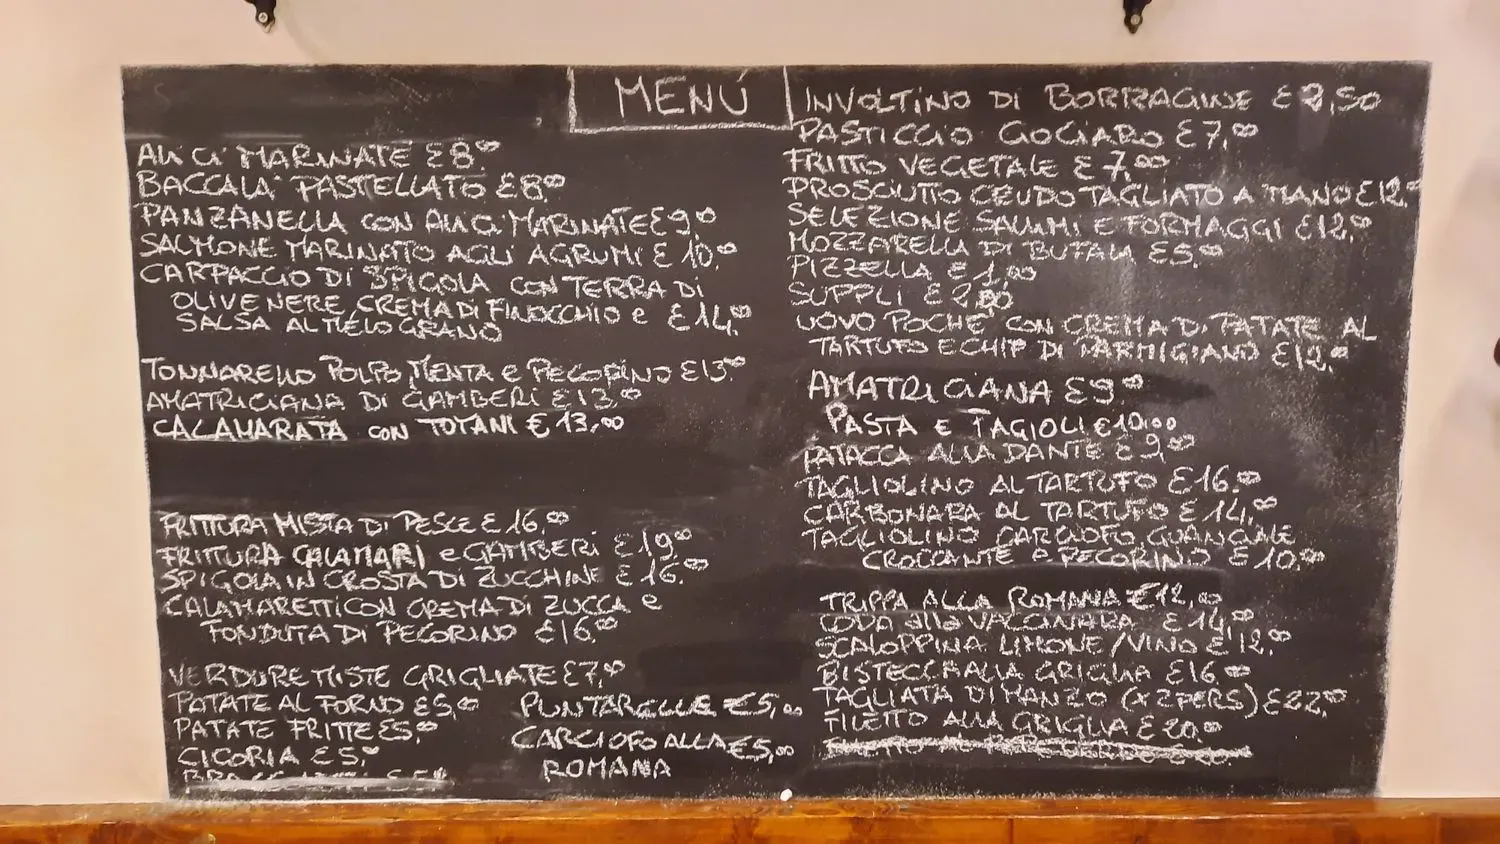 MENÚ
ALICI MARINATE £8,00
BACCALA' PASTELLATO £8,00
PANZANELLA CON ALICI MARINATE £9,00
SALMONE MARINATO AGLI AGRUMI £ 10,00
CARPACCIO DI SPIGOLA CON TERRA DI
OLIVE NERE, CREMA DI FINOCCHIO e £14,00
SALSA AL MELOGRANO
TONNARELLO POLPO MENTA e PECORINO £13,00
AMATRICIANA DI GAMBERI £13,00
CALAMARATA CON TOTANI € 13,00
FRITTURA MISTA DI PESCE £ 16,00
FRITTURA CALAMARI e GAMBERI £19,00
SPIGOLA IN CROSTA DI ZUCCHINE £16,00
CALAMARETTI CON CREMA DI ZUCCA e
FONDUTA DI PECORINO £16,00
VERDURE MISTE GRIGLIATE £7,00
PATATE AL FORNO £5,00
PATATE FRITTE £5,00
CICORIA £5,00
PUNTARELLE €5,00
CARCIOFO ALLA €5,00
ROMANA
INVOLTINO DI BORRAGINE £ 2,50
PASTICCIO CIOCIARO £7,00
FRITTO VEGETALE £ 7,00
PROSCIUTTO CRUDO TAGLIATO A MANO £12,00
SELEZIONE SALUMI E FORMAGGI £12,00
MOZZARELLA DI BUFALA £5,00
PIZZELLA £ 1,00
SUPPLI £ 2,00
UOVO POCHE' CON CREMA DI PATATE AL
TARTUFO E CHIP DI PARMIGIANO £12,00
AMATRICIANA £9,00
PASTA E FAGIOLI €10,00
PATACCA ALLA DANTE £ 9,00
TAGLIOLINO AL TARTUFO £16,00
CARBONARA AL TARTUFO £ 14,00
TAGLIOLINO CARCIOFO GUANCIALE
CROCCANTE e PECORINO £ 10,00
TRIPPA ALLA ROMANA €12,00
CODA alla VACCINARA £ 14,00
SCALOPPINA LIMONE/VINO £ 12,00
BISTECCA ALLA GRIGLIA £16,00
TAGLIATA DI MANZO (X 2 PERS) £22,00
FILETTO ALLA GRIGLIA £ 20,00